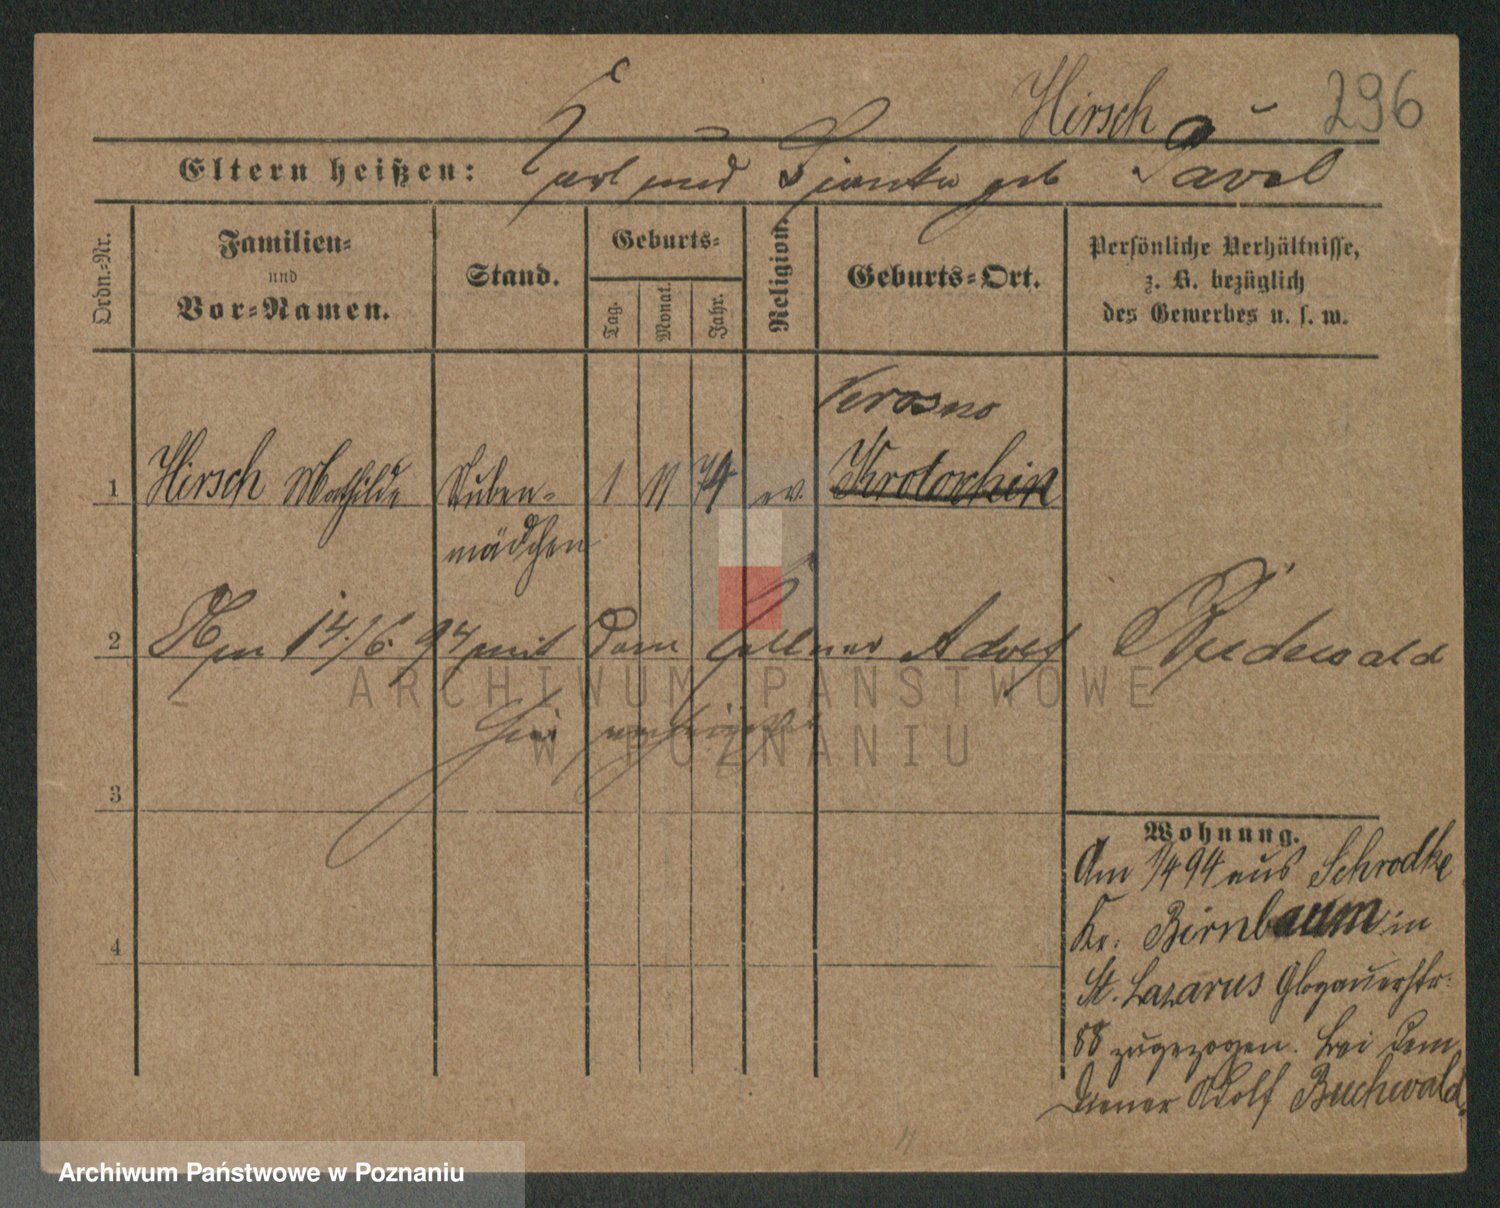 Hirsch 296
Eltern heißen: Karl und geb Pavel
Ordn.-Nr.
Familien-
und
Vor-Namen.
Stand.
Geburts-
Tag.
Monat.
Jahr.
Religion.
Geburts-Ort.
Persönliche Verhältnisse,
z. B. bezüglich
des Gewerbes u. s. w.
Krosno
1 Hirsch Mathilde Stuben- 1 11 74 ev. Krotoschin
mädchen
2 Am 14./6. 94 mit dem Kellner Adolf Budewald
hier verheiratet
3
4
Wohnung.
Am 1/4 94 aus Schrodke
Kr. Birnbaum in
St. Lazarus Glogauerstr.
88 zugezogen. bei dem
Diener Adolf Buchwald.
ARCHIWUM PAŃSTWOWE
W POZNANIU
Archiwum Państwowe w Poznaniu